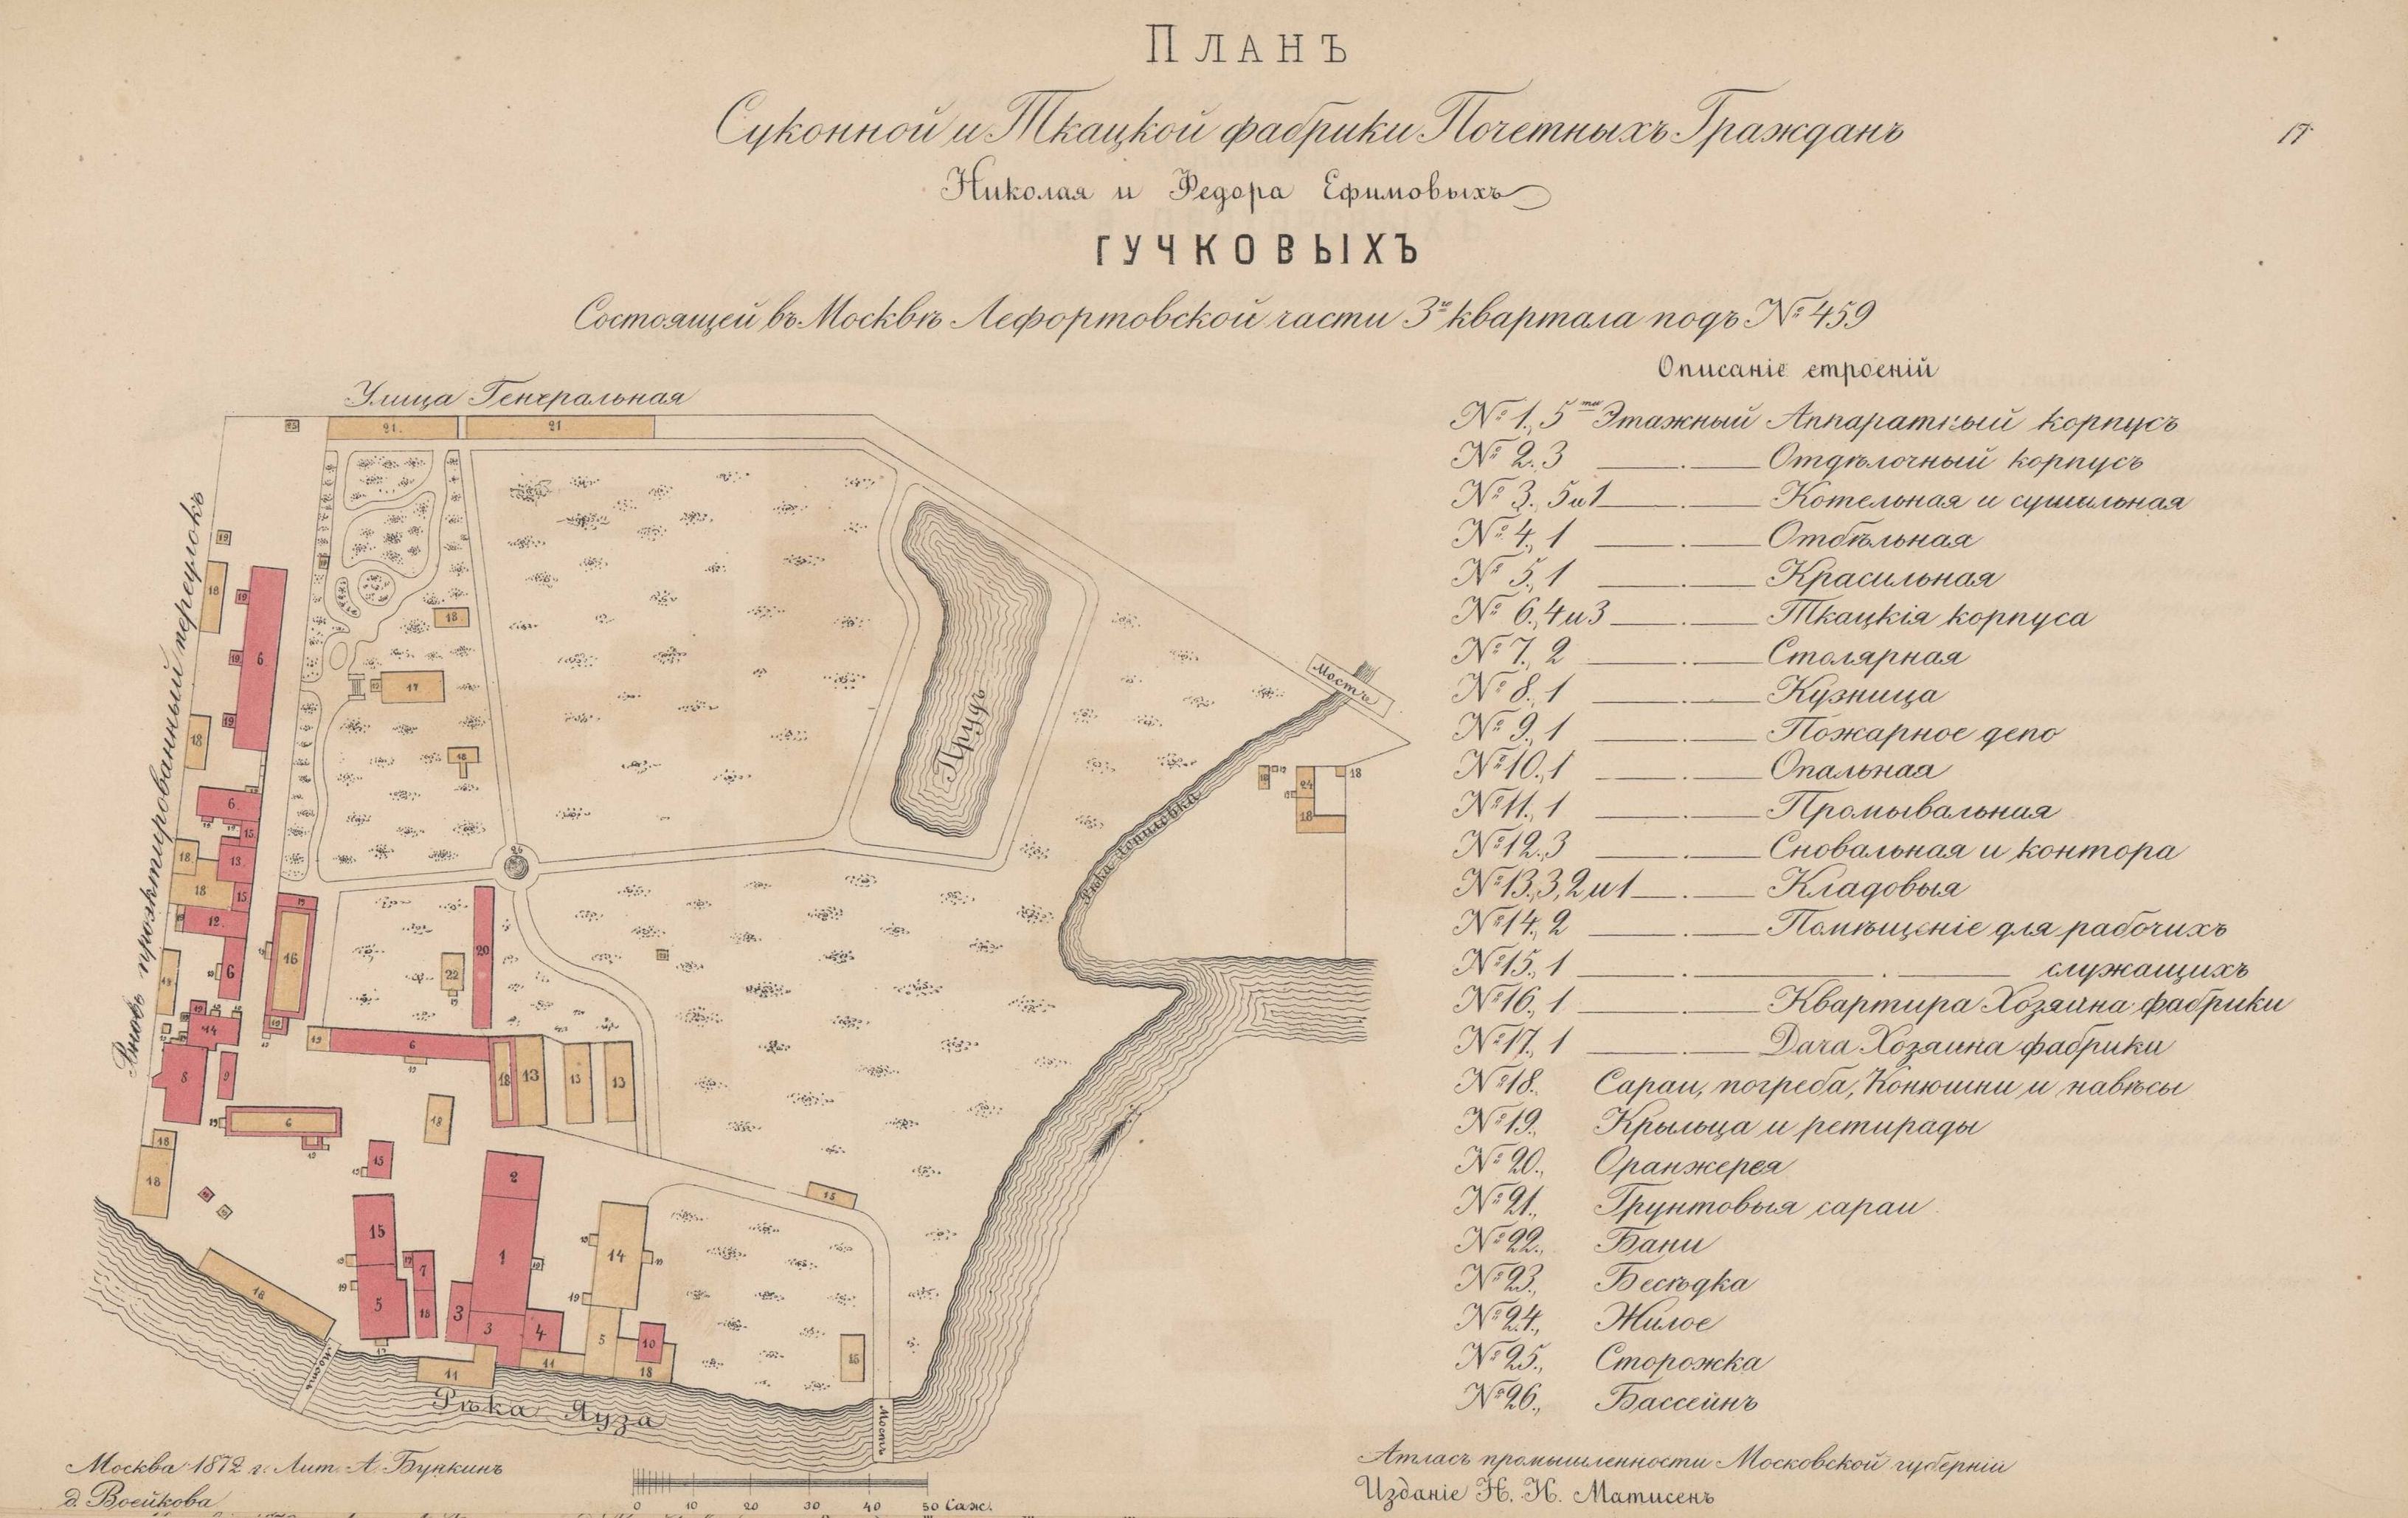 Планъ
17
Суконной и Ткацкой фабрики Почетныхъ Гражданъ
Николая и Федора Ефимовыхъ
ГУЧКОВЫХЪ
Состоящей въ Москвѣ Лефортовской части 3го квартала подъ № 459
Описаніе строеній
№ 1., 5ти Этажный Аппаратный корпусъ
№ 2., 3 —— . —— Отдѣлочный корпусъ
№ 3., 5 и 1 —— . —— Котельная и сушильная
№ 4., 1 —— . —— Отбѣльная
№ 5., 1 —— . —— Красильная
№ 6., 4 и 3 —— . —— Ткацкія корпуса
№ 7., 2 —— . —— Столярная
№ 8., 1 —— . —— Кузница
№ 9., 1 —— . —— Пожарное депо
№ 10., 1 —— . —— Опальная
№ 11., 1 —— . —— Промывальная
№ 12., 3 —— . —— Сновальная и контора
№ 13., 3, 2 и 1 —— . —— Кладовыя
№ 14., 2 —— . —— Помѣщеніе для рабочихъ
№ 15., 1 —— . —— . —— служащихъ
№ 16., 1 —— . —— Квартира Хозяина фабрики
№ 17., 1 —— . —— Дача Хозяина фабрики
№ 18. Сараи, погреба, Конюшни и навѣсы
№ 19. Крыльца и ретирады
№ 20., Оранжерея
№ 21., Грунтовыя сараи
№ 22., Бани
№ 23., Бесѣдка
№ 24., Жилое
№ 25., Сторожка
№ 26., Бассейнъ
Улица Генеральная
Вновь проэктированный переулокъ
25
21.
21
19
18
19
6
19
18
19
18
17
18
Прудъ
Мостъ
Рѣка Хопиловка
18
24
18
6.
15
18.
13.
18
15
12.
6
26
19
16
19
20
22
19
14
8
9
6
19
6
18
13
13
13
18
18
18
15
2
15
1
14
15
7
5
18
3
3
4
5
10
18
11
11
18
15
Мостъ
Мостъ
Рѣка Яуза
0 10 20 30 40 50 Саж.
Москва 1872 г. Лит. А. Бункинъ
д. Воейкова
Атласъ промышленности Московской губерніи
Изданіе Н. Н. Матисенъ